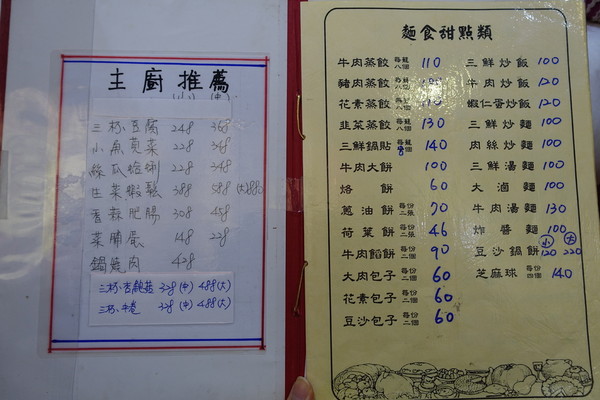 主廚推薦
(小) (中)
三杯豆腐 248 368
小魚莧菜 228 348
絲瓜蛤蜊 228 348
生菜蝦鬆 388 588 (大)888
蒜肥腸 308 458
菜脯蛋 148 228
鍋燒肉 428
三杯杏鮑菇 328(中) 488(大)
三杯中卷 328(中) 488(大)
麵食甜點類
牛肉蒸餃 每籠八個 110
豬肉蒸餃 每籠八個
花素蒸餃 每籠八個 110
韭菜蒸餃 每籠八個 130
三鮮鍋貼 每份8個 140
牛肉大餅 100
烙餅 60
蔥油餅 每份二張 70
荷葉餅 每份二張 46
牛肉餡餅 每份二個 90
大肉包子 每份二個 60
花素包子 每份二個 60
豆沙包子 每份二個 60
三鮮炒飯 100
牛肉炒飯 120
蝦仁蛋炒飯 120
三鮮炒麵 100
肉絲炒麵 100
三鮮湯麵 100
大滷麵 100
牛肉湯麵 130
炸醬麵 100
豆沙鍋餅 小120 大220
芝麻球 每份四個 140